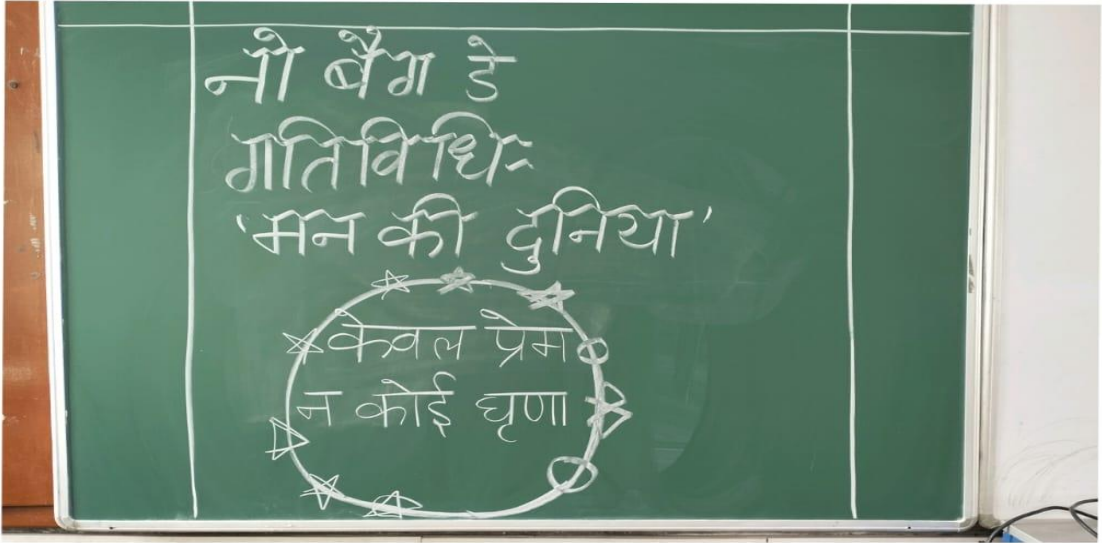 नो बैग डे
गतिविधि:-
'मन की दुनिया'
केवल प्रेम
न कोई घृणा